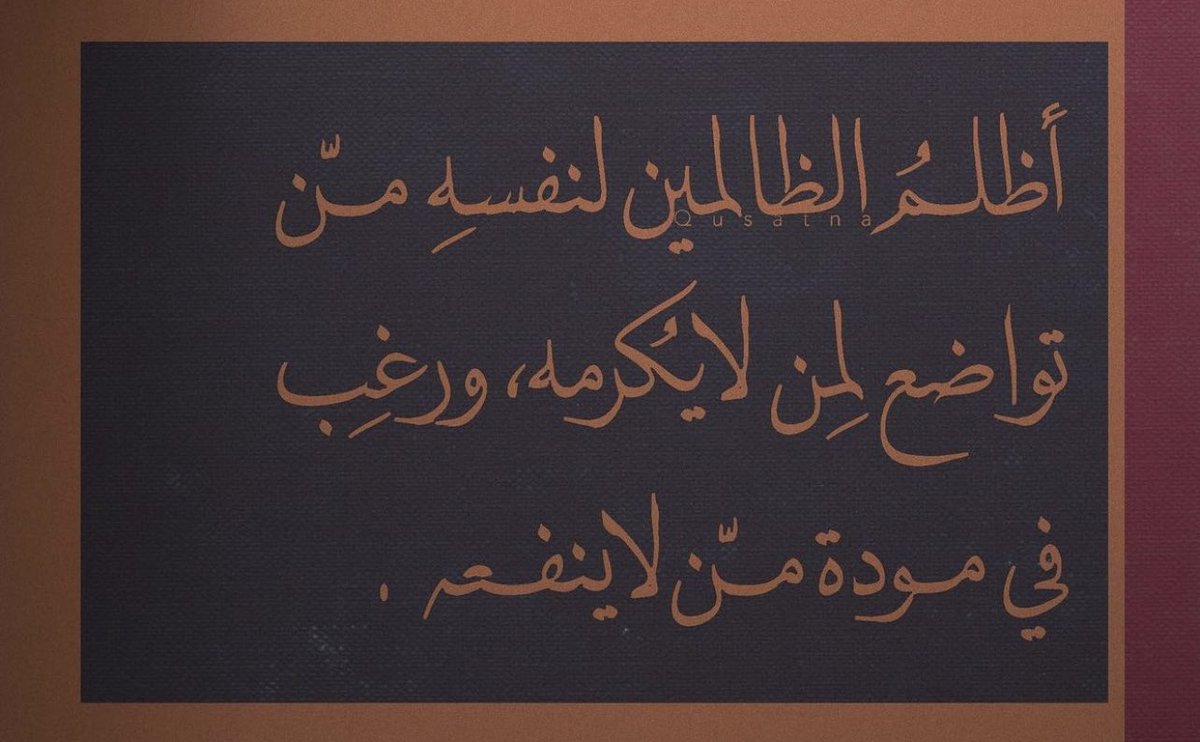 أظلمُ الظالمين لنفسهِ منّ
Qusatna
تواضع لِمن لايُكرمه، ورغِب
في مودة منّ لاينفعه .